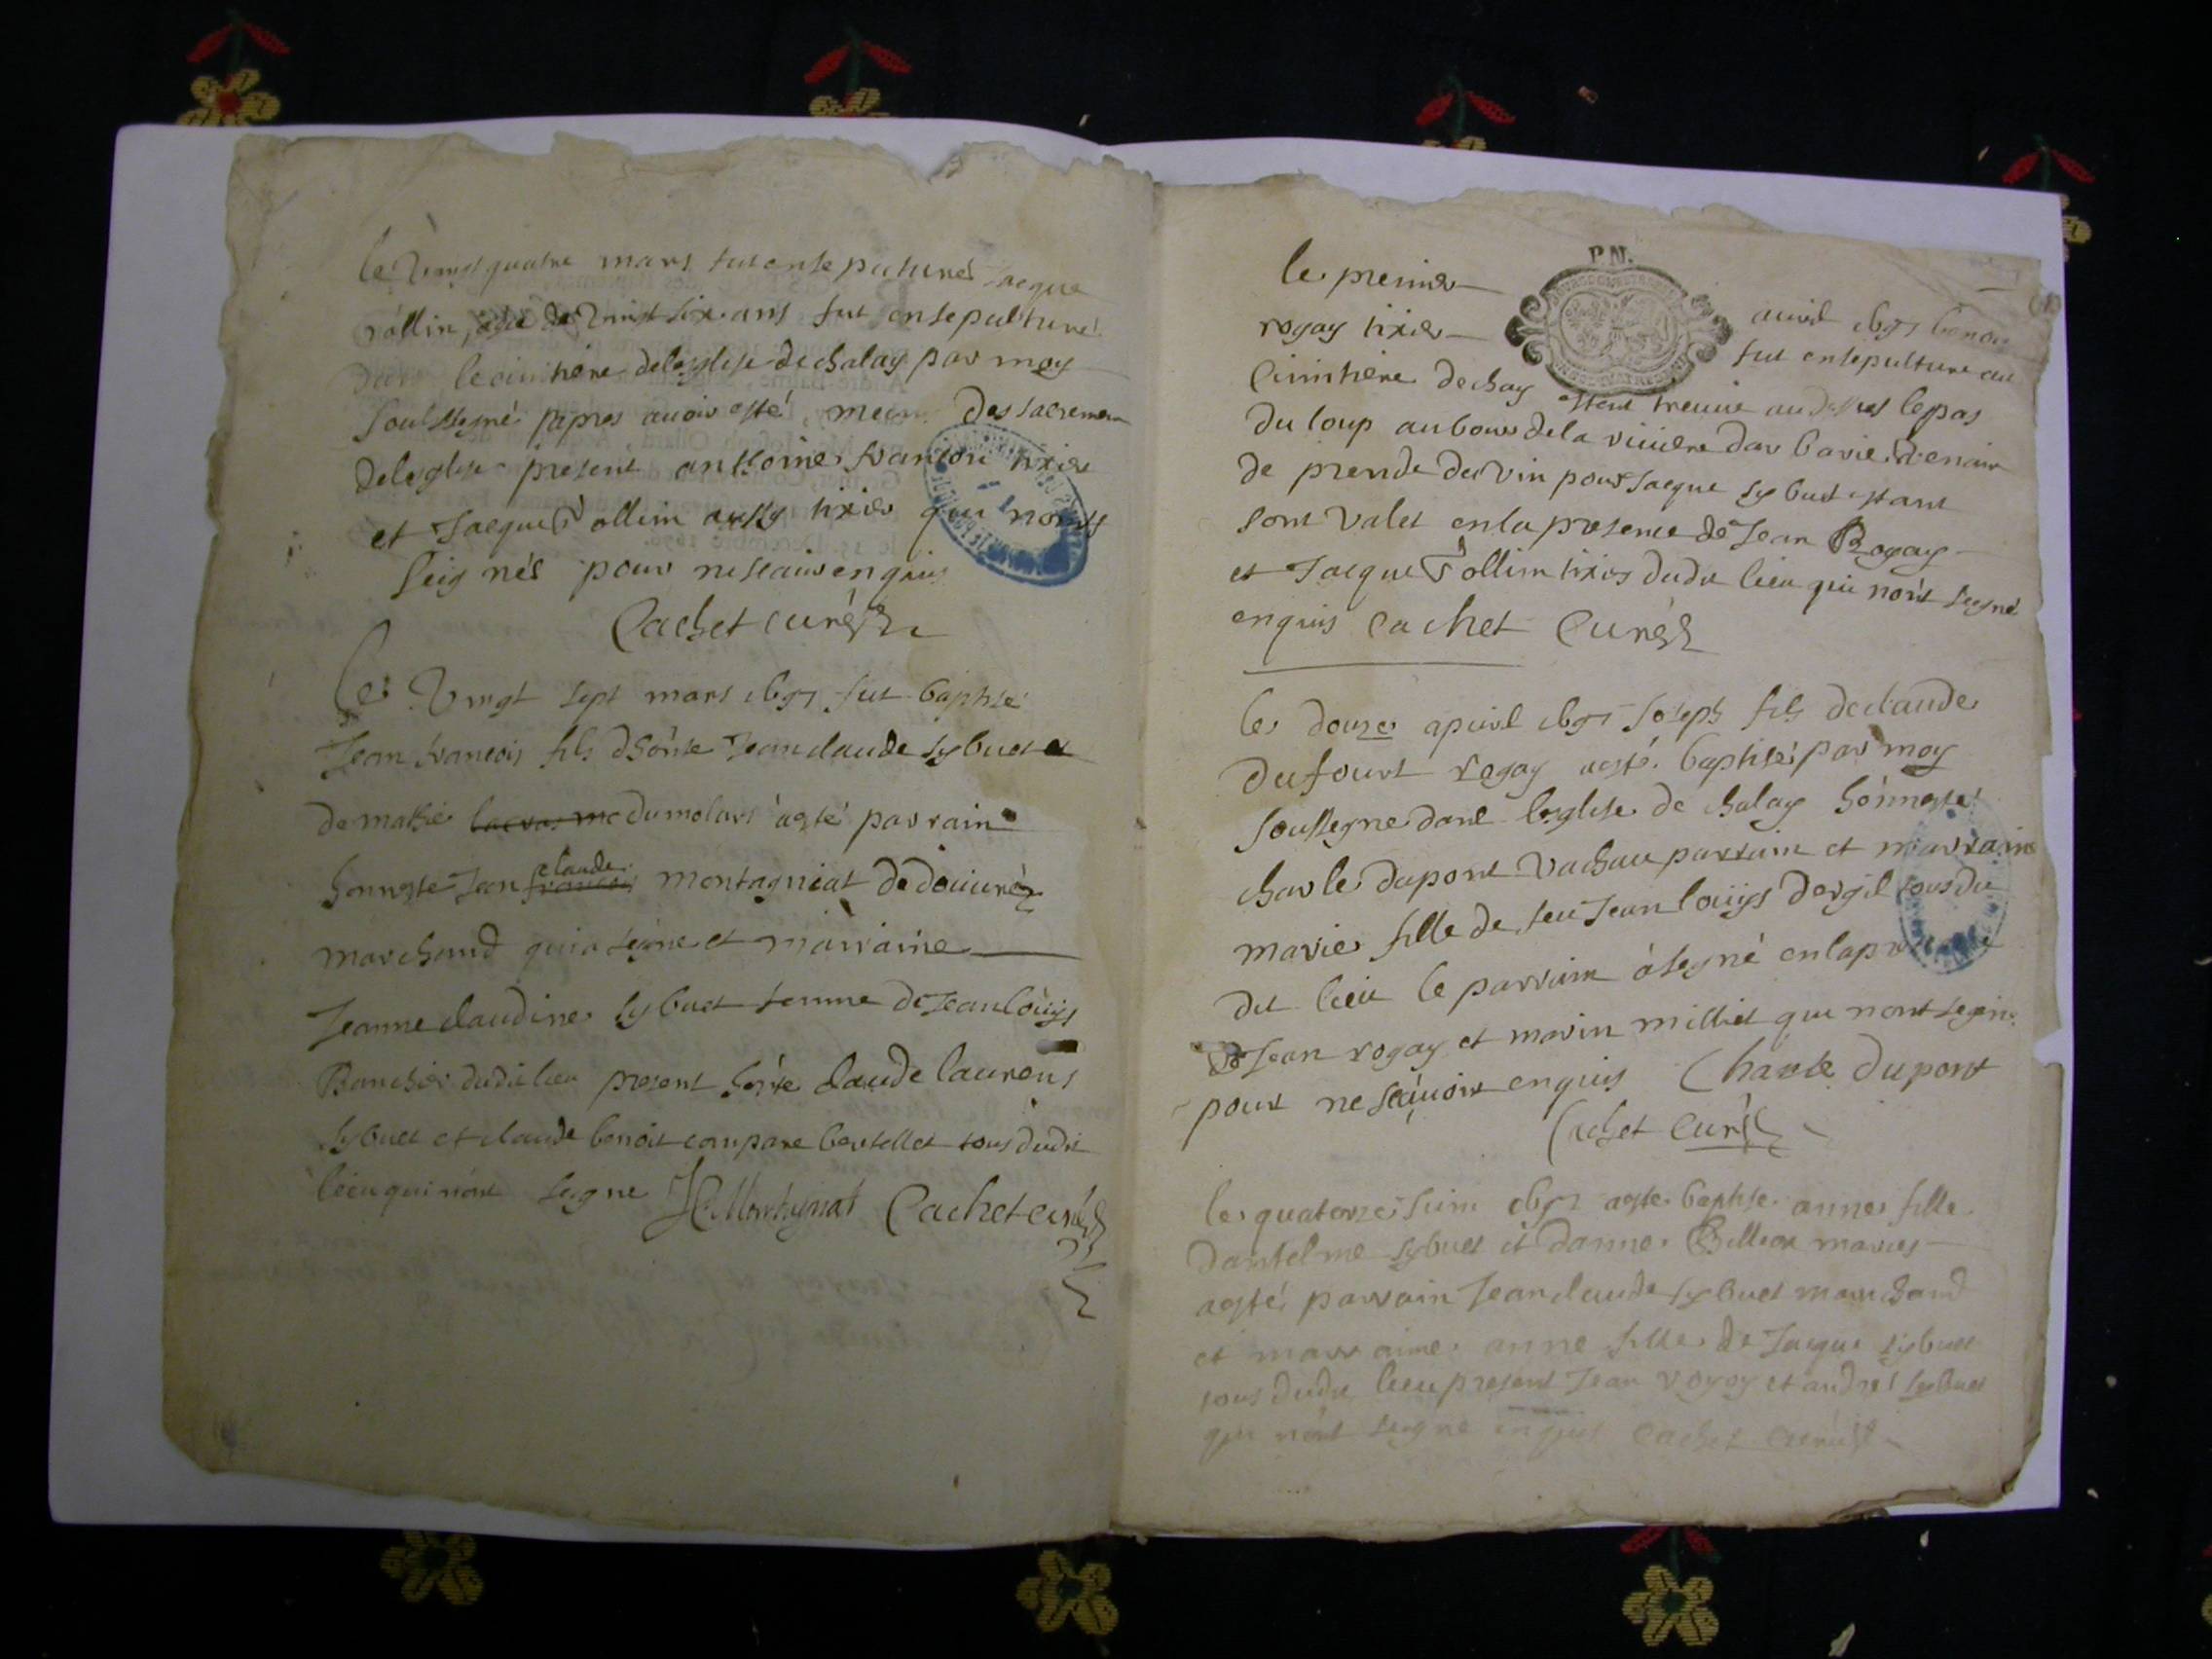 le vingt quatre mars fut ensepulturé Jacque
rollin, agée de vingt six ans fut ensepulturé
dans le cimitiere delesglise de chalay par moy
soussegné apres avoir esté muni des sacremen
delesglise present anthoine francon tixier
et Jacque rollin aussy tixier qui nonts
seignés pour ne scavoir enquis
Cachet curé
Le vingt sept mars 1691 fut baptisé
Jean francois fils dhonste Jean claude sybuet et
de mathie dumolard àesté parrain
honneste Jean claude francois montagniat de
marchand qui a signe et marraine
Jeanne claudine sybuet femme de Jean loüys
dudit lieu present honste claude laurens
sybuet et claude benoit tous dudit
lieu qui nont segne JC Montagnat Cachet curé
P.N.
le premier avril 1691 benoit
rogay tixier fut ensepulture au
Cimitiere de chay estent treuvé au dessus le pas
du loup au bour de la riviere
de prendre du vin pour Jacque sybuet estant
sont valet en la presence de Jean Rogay
et Jacque rollin tixier dudit lieu qui nont segné
enquis Cachet Curé
le douze apvril 1691 Joseph fils de claude
dufourt rogay aesté baptisé par moy
soussegne dans leglise de chalay honneste
charle dupont parrain et marraine
marie fille de feu Jean loüys dergil tous du
dit lieu le parrain à segné en la
de Jean rogay et marin milliet qui nont segne
pour ne scavoir enquis Charle dupont
Cachet Curé
le quatorze Juin 1691 aeste baptise anne fille
dantelme sybuet et danne Billion maries
aesté parrain Jean claude sybuet marchand
et marraine anne fille de Jacque sybuet
tous dudit lieu present Jean rogay et andre sybuet
qui nont segne enquis Cachet curé